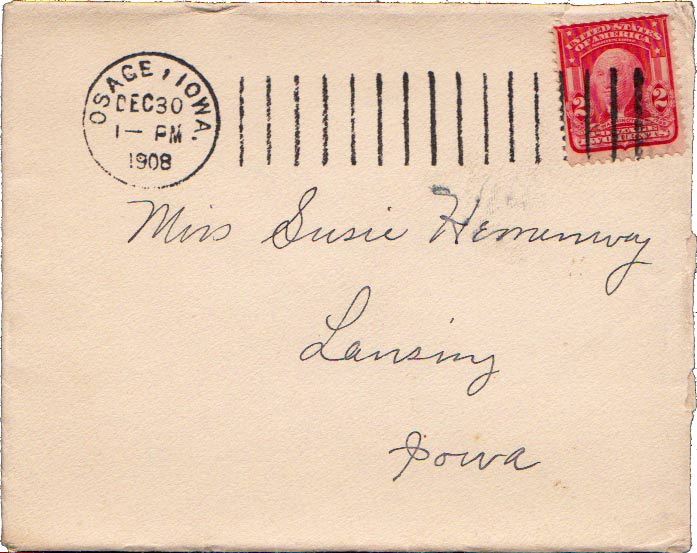 OSAGE, IOWA.
DEC 30
1— PM
1908
UNITED STATES
OF AMERICA
2 2
TWO CENTS
Miss Susie Hemenway
Lansing
Iowa